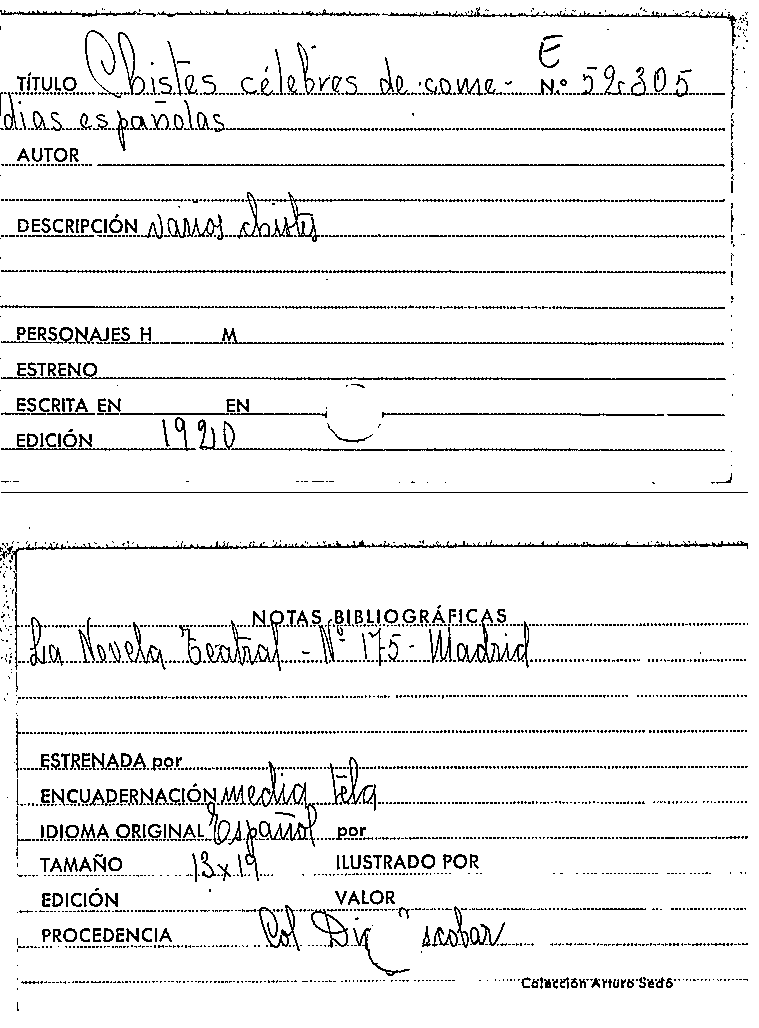 E
TÍTULO Chistes célebres de come- N.º 59.305
dias españolas
AUTOR
DESCRIPCIÓN varios chistes
PERSONAJES H M
ESTRENO
ESCRITA EN EN
EDICIÓN 1920
NOTAS BIBLIOGRÁFICAS
La Novela Teatral - Nº 175 - Madrid
ESTRENADA por
ENCUADERNACIÓN media tela
IDIOMA ORIGINAL Español por
TAMAÑO 13x19 ILUSTRADO POR
EDICIÓN VALOR
PROCEDENCIA Col
Colección Arturo Sedó